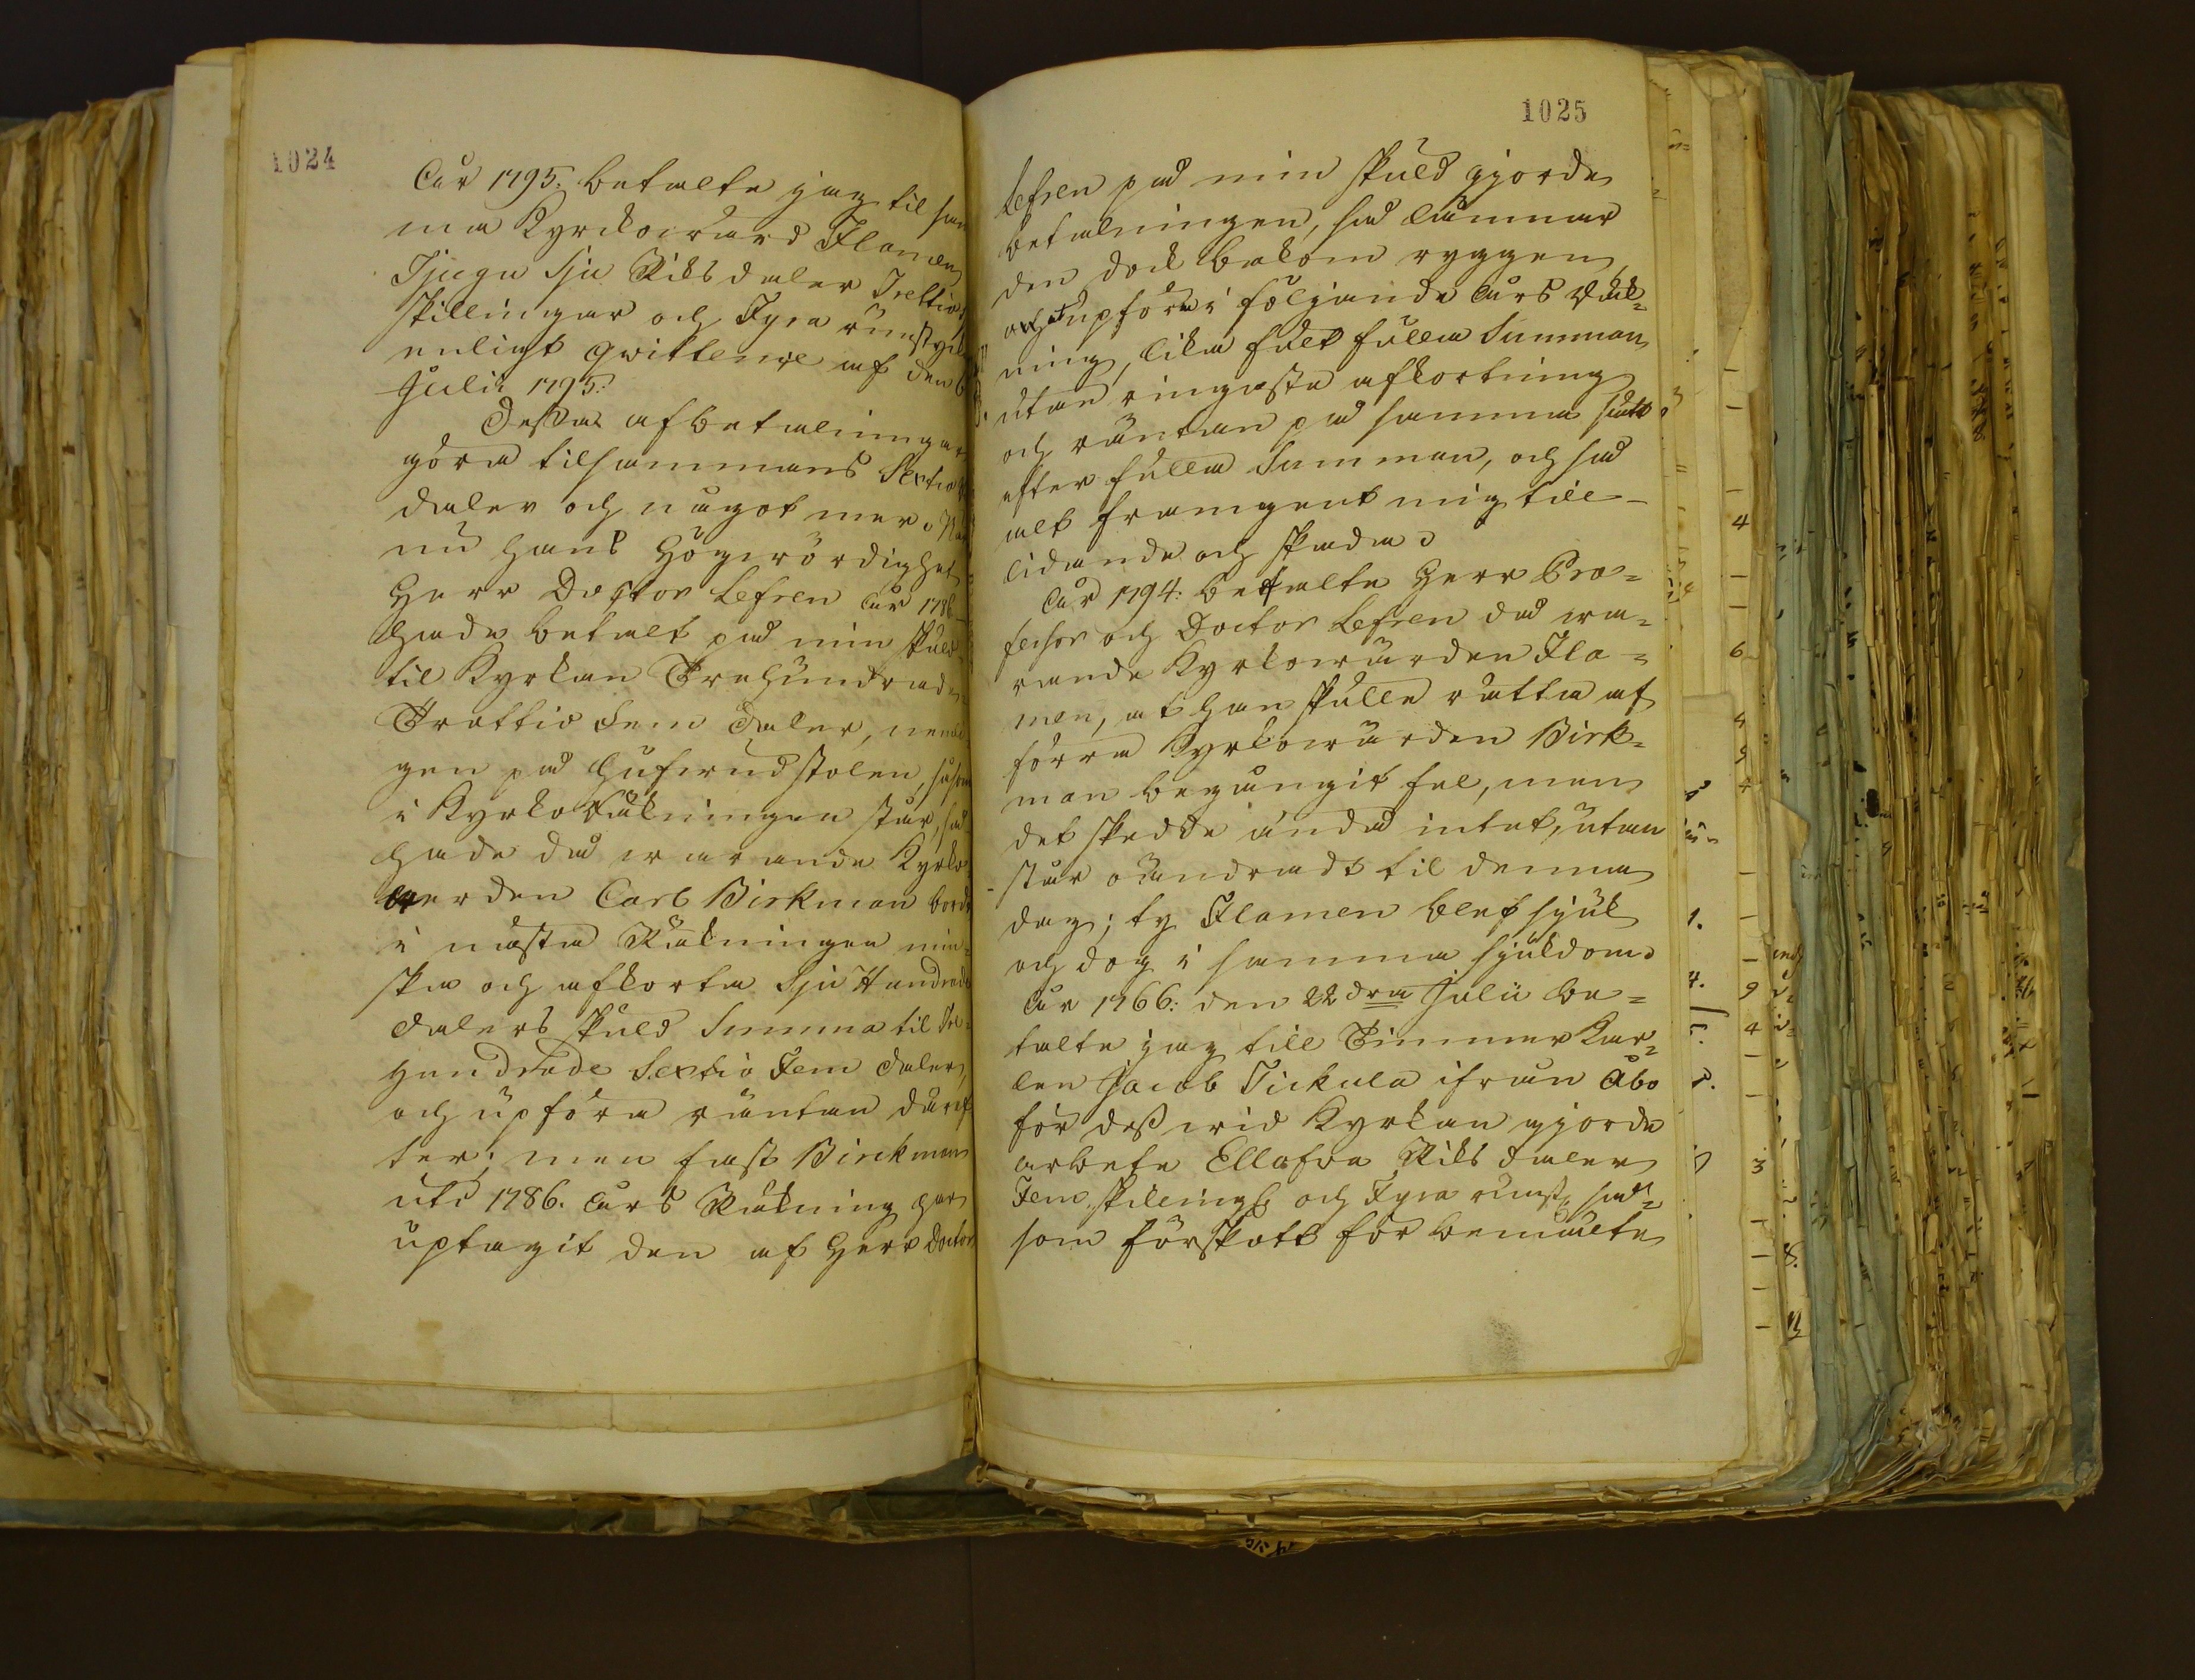 1024
År 1795. betalte jag til sam
ma Kyrckowärd Flamen
Tjugu Sju Riksdaler Trettio
skillingar och Fyra runstyck
enligt qwittence af den 6
Julii 1795.
Dessa afbetalningar
göra tilsammans Sextio
daler och något mer.
nu Hans Högwördighet
Herr Doctor Lefren År 1786
hade betalt på min skuld
til Kyrkan Trehundrade
Trettio Fem daler, neml
gen på Hufwudstolen, såsom
i KyrkoRäkningen står, så
hade då warande Kyrko
werden Carl Birkman bordt
i nästa Räkningen min=
ska och afkorta Sju Hundrade
dalers skuld Summa til Tre=
hundrade Sextio Fem daler,
och upföra räntan däref
ter; men fast Birckman
uti 1786. års Räkning har
uptagit den af Herr Doctor
1025
Lefren på min skuld gjorde
betalningen, så lämnar
den dock bakom ryggen,
och upföra i följande års Räk=
ning, lika fult fulla Summan
utan ringaste afkortning
och räntan på samma sätt
efter fulla Summan, och så
alt framgent mig till
lidande och skada.
År 1794. befalte Herr Pro=
fessor och Doctor Lefren då wa=
rande Kyrkowärden Fla=
men, at han skulle rätta af
förra Kyrkowärden Birk=
man begångit fel, men
det skedde ändå intet, utan
står oändradt til denna
dag; ty Flamen blef sjuk
och dog i samma sjukdom.
År 1766. den 22dra Julii be=
talte jag till Timmer Kar=
len Jacob Tickula ifrån Åbo
för dess wid Kyrkan gjorde
arbete Ellofwa Riks daler
Fem skilling och Fyra runst så=
som förskott för bemälte